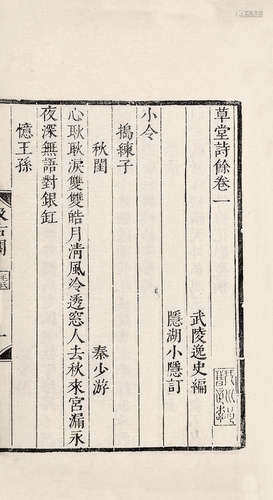 草堂詩餘卷一
武陵逸史編
隱湖小隱訂
小令
搗練子
秋閨
秦少游
心耿耿淚雙雙皓月清風冷透窻人去秋來宮漏永
夜深無語對銀缸
憶王孫